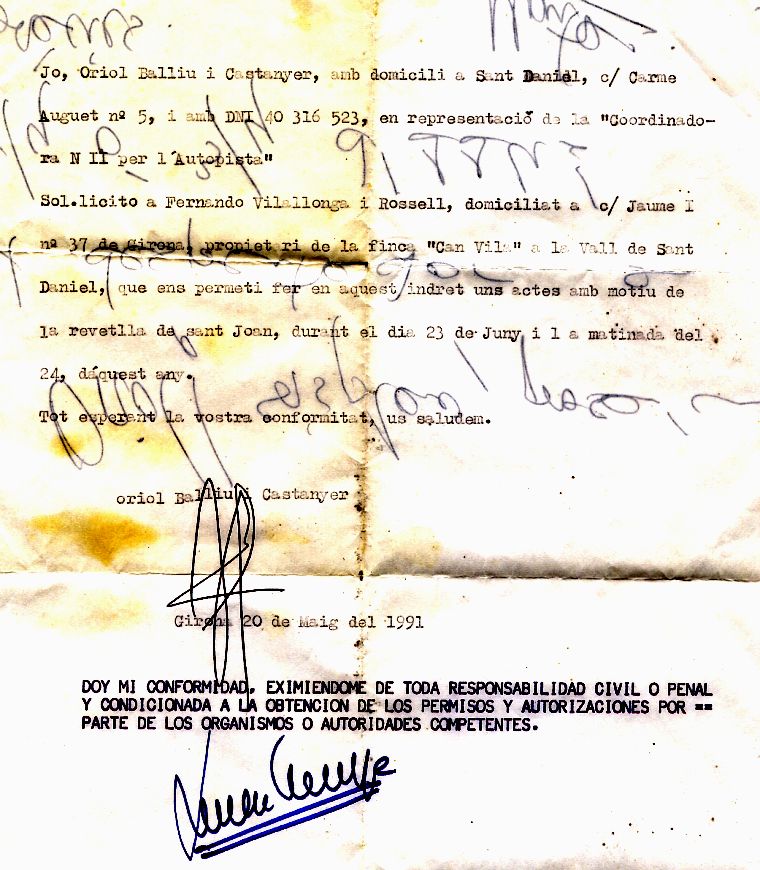 Jo, Oriol Balliu i Castanyer, amb domicili a Sant Daniel, c/ Carme
Auguet nº 5, i amb DNI 40 316 523, en representació de la "Coordinado-
ra N II per l'Autopista"
Sol.licito a Fernando Vilallonga i Rossell, domiciliat a c/ Jaume I
nº 37 de Girona, propiet ri de la finca "Can Vila" a la Vall de Sant
Daniel, que ens permeti fer en aquest indret uns actes amb motiu de
la revetlla de sant Joan, durant el dia 23 de Juny i l a matinada del
24, dáquest any.
Tot esperant la vostra conformitat, us saludem.
oriol Balliu i Castanyer
Girona 20 de Maig del 1991
DOY MI CONFORMIDAD, EXIMIENDOME DE TODA RESPONSABILIDAD CIVIL O PENAL
Y CONDICIONADA A LA OBTENCION DE LOS PERMISOS Y AUTORIZACIONES POR ==
PARTE DE LOS ORGANISMOS O AUTORIDADES COMPETENTES.